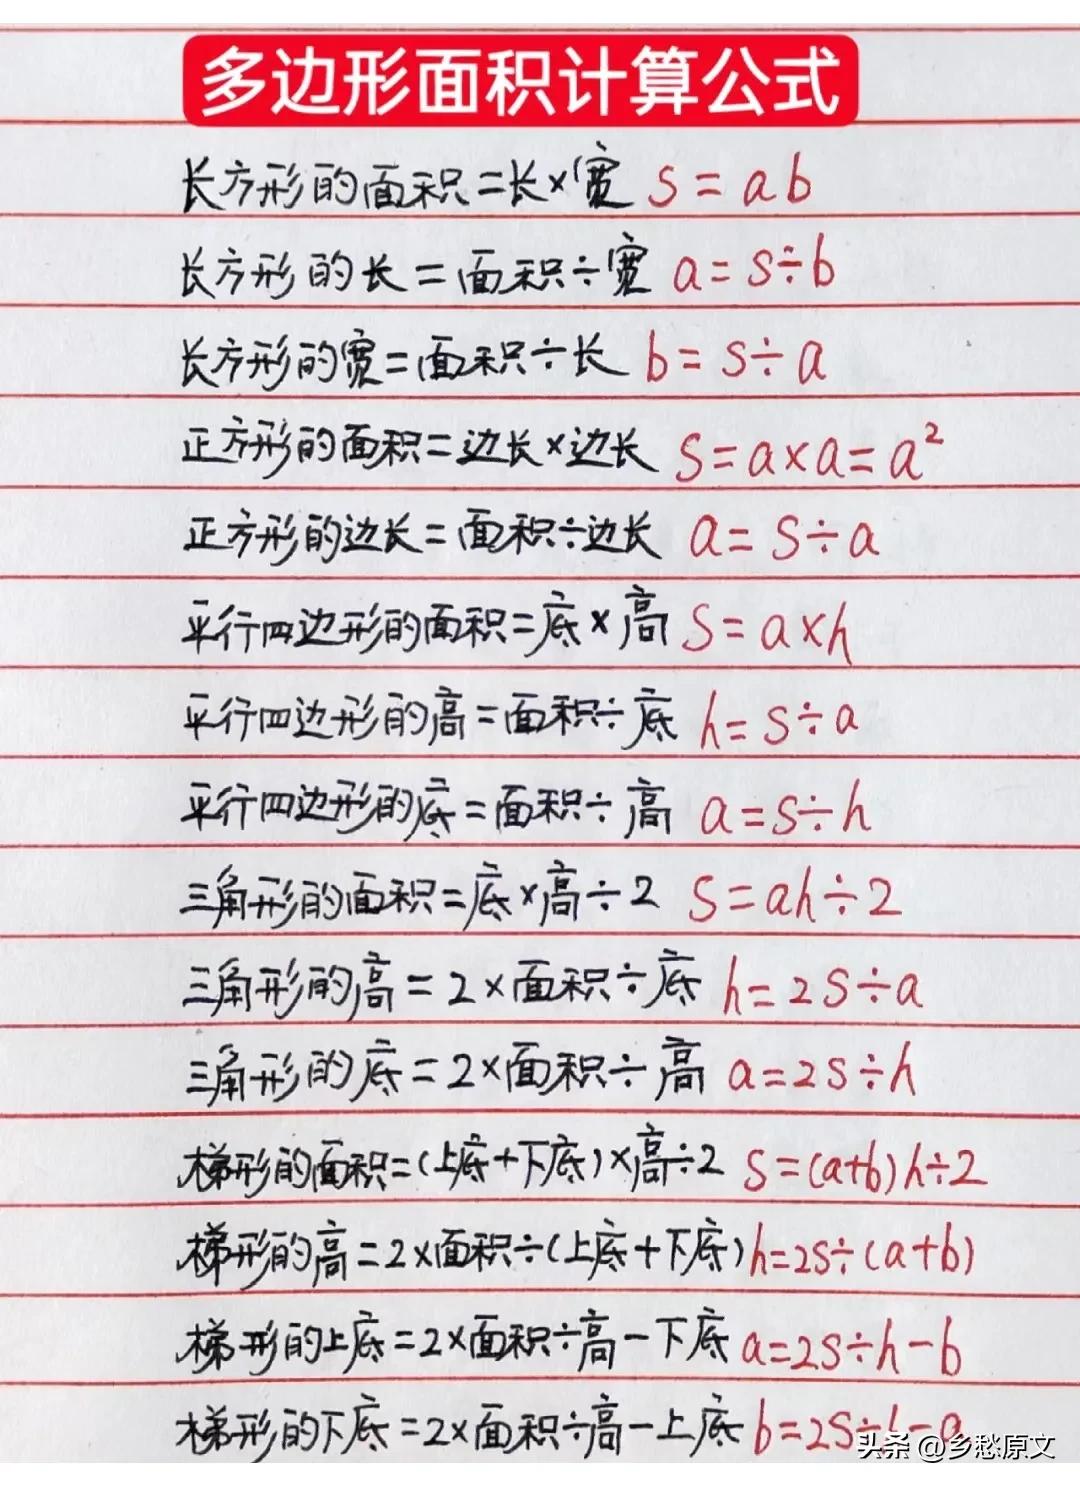 多边形面积计算公式
长方形的面积=长×宽 S=ab
长方形的长=面积÷宽 a=S÷b
长方形的宽=面积÷长 b=S÷a
正方形的面积=边长×边长 S=a×a=a²
正方形的边长=面积÷边长 a=S÷a
平行四边形的面积=底×高 S=a×h
平行四边形的高=面积÷底 h=S÷a
平行四边形的底=面积÷高 a=S÷h
三角形的面积=底×高÷2 S=ah÷2
三角形的高=2×面积÷底 h=2S÷a
三角形的底=2×面积÷高 a=2S÷h
梯形的面积=(上底+下底)×高÷2 S=(a+b)h÷2
梯形的高=2×面积÷(上底+下底) h=2S÷(a+b)
梯形的上底=2×面积÷高-下底 a=2S÷h-b
梯形的下底=2×面积÷高-上底 b=2S÷h-a
头条 @乡愁原文